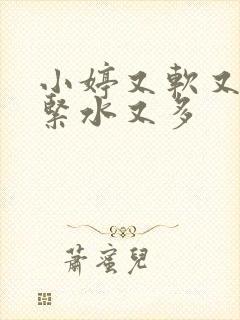 小婷又軟又
緊水又多
蕭蜜兒